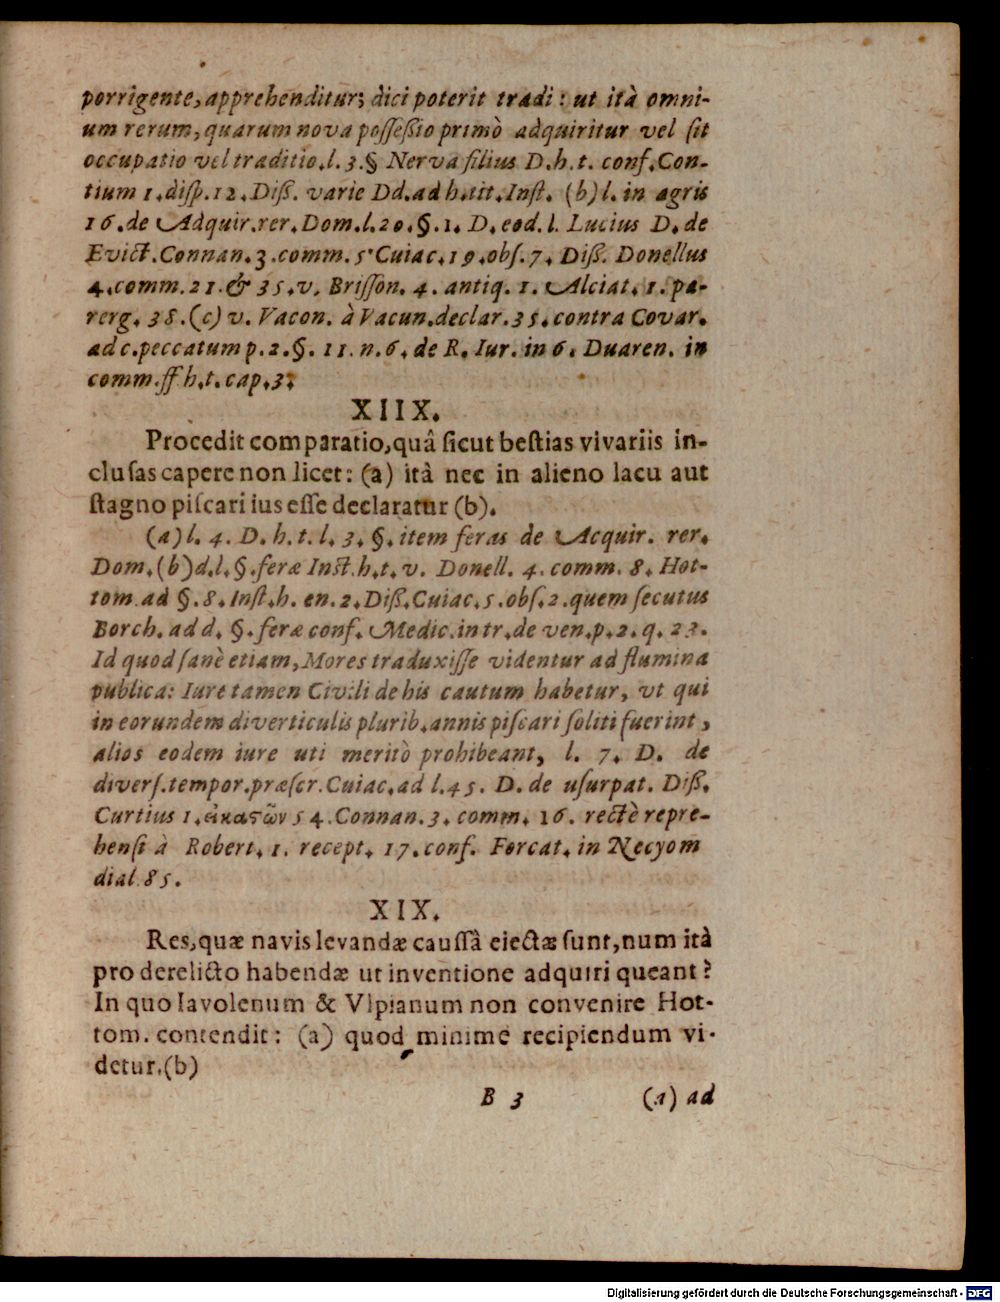 porrigente, apprehenditur; dici poterit tradi: ut ità omni-
um rerum, quarum nova possessio primò adquiritur vel sit
occupatio vel traditio. l. 3. § Nerva filius D. h. t. conf. Con-
tium 1. disp. 12. Diss. varie Dd. ad h. tit. Inst. (b) l. in agris
16. de Adquir. rer. Dom. l. 20. §. 1. D. eod. l. Lucius D. de
Evict. Connan. 3. comm. 5. Cuiac. 19. obs. 7. Diss. Donellus
4. comm. 21. & 35. v. Brisson. 4. antiq. 1. Alciat. 1. pa-
rerg. 38. (c) v. Vacon. à Vacun. declar. 35. contra Covar.
ad c. peccatum p. 2. §. 11. n. 6. de R. Iur. in 6. Duaren. in
comm. ff h. t. cap. 3.
XIIX.
Procedit comparatio, quâ sicut bestias vivariis in-
clusas capere non licet: (a) ità nec in alieno lacu aut
stagno piscari ius esse declaratur (b).
(a) l. 4. D. h. t. l. 3. §. item feras de Acquir. rer.
Dom. (b) d. l. §. feræ Inst. h. t. v. Donell. 4. comm. 8. Hot-
tom. ad §. 8. Inst. h. en. 2. Diss. Cuiac. 5. obs. 2. quem secutus
Borch. ad d. §. feræ conf. Medic. in tr. de ven. p. 2. q. 23.
Id quod sanè etiam, Mores traduxisse videntur ad flumina
publica: Iure tamen Civili de his cautum habetur, ut qui
in eorundem diverticulis plurib. annis piscari soliti fuerint,
alios eodem iure uti meritò prohibeant, l. 7. D. de
divers. tempor. præscr. Cuiac. ad l. 45. D. de usurpat. Diss.
Curtius 1. εἰκαστῶν 54. Connan. 3. comm. 16. rectè repre-
hensi à Robert. 1. recept. 17. conf. Forcat. in Necyom
dial. 85.
XIX.
Res, quæ navis levandæ caussâ eiectæ sunt, num ità
pro derelicto habendæ ut inventione adquiri queant?
In quo Iavolenum & Vlpianum non convenire Hot-
tom. contendit: (a) quod minime recipiendum vi-
detur. (b)
B 3 (a) ad
Digitalisierung gefördert durch die Deutsche Forschungsgemeinschaft - DFG